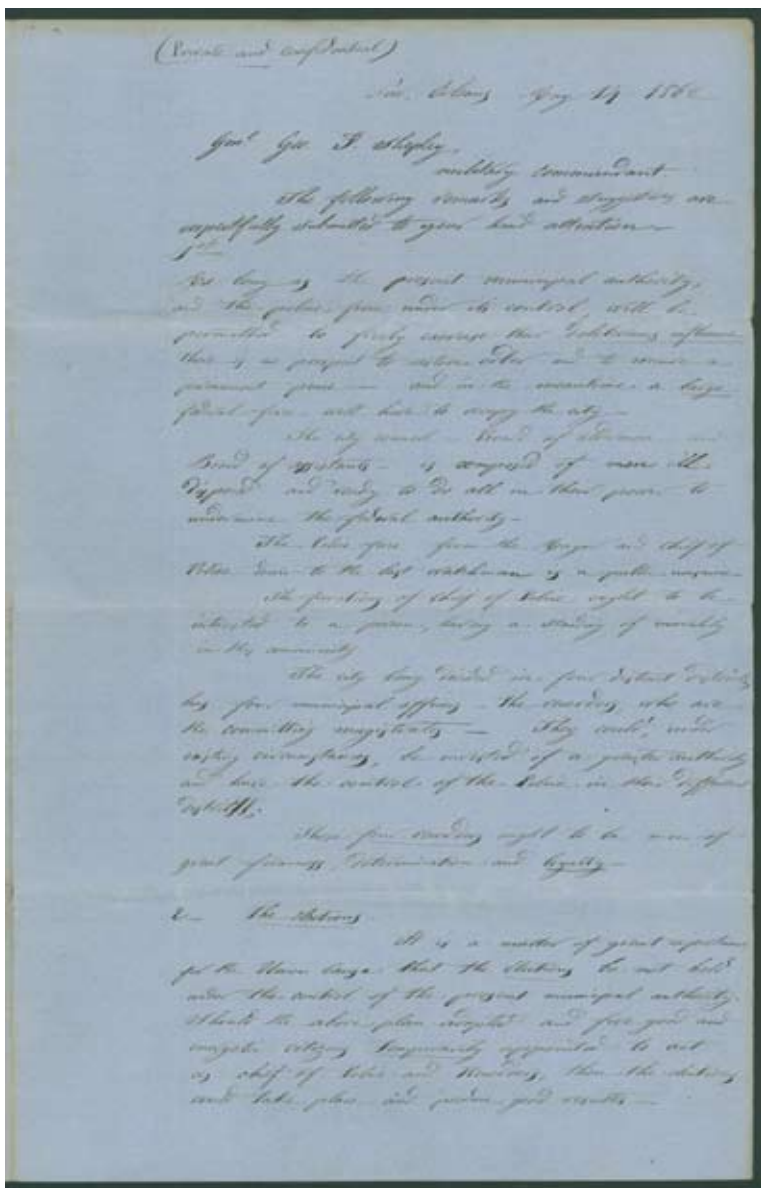 (Private and confidential)
New Orleans May 14 1862
Genl Geo. F. Shepley,
military commandant
The following remarks and suggestions are
respectfully submitted to your kind attention
1st
As long as the present municipal authority,
and the police force under its control, will be
permitted to freely exercise their deleterious influence
there is no prospect to restore order and to secure a
permanent peace — and in the meantime a large
federal force will have to occupy the city —
The city council — Board of aldermen and
Board of assistants — is composed of men ill
disposed and ready to do all in their power to
undermine the federal authority —
The Police force from the Mayor and chief of
Police down to the last watchman is a public nuisance
The functions of chief of Police ought to be
intrusted to a person, having a standing of morality
in this community
The city being divided in four distinct districts
has four municipal officers — the recorders, who are
the committing magistrates — They could, under
existing circumstances, be invested of a greater authority
and have the control of the Police in their different
districts.
These four recorders ought to be men of
great firmness, determination and loyalty —
2 — The elections
It is a matter of great importance
for the Union cause that the elections be not held
under the control of the present municipal authority.
Should the above plan adopted and five good and
energetic citizens temporarily appointed to act
as chief of Police and Recorders, then the elections
could take place and produce good results —